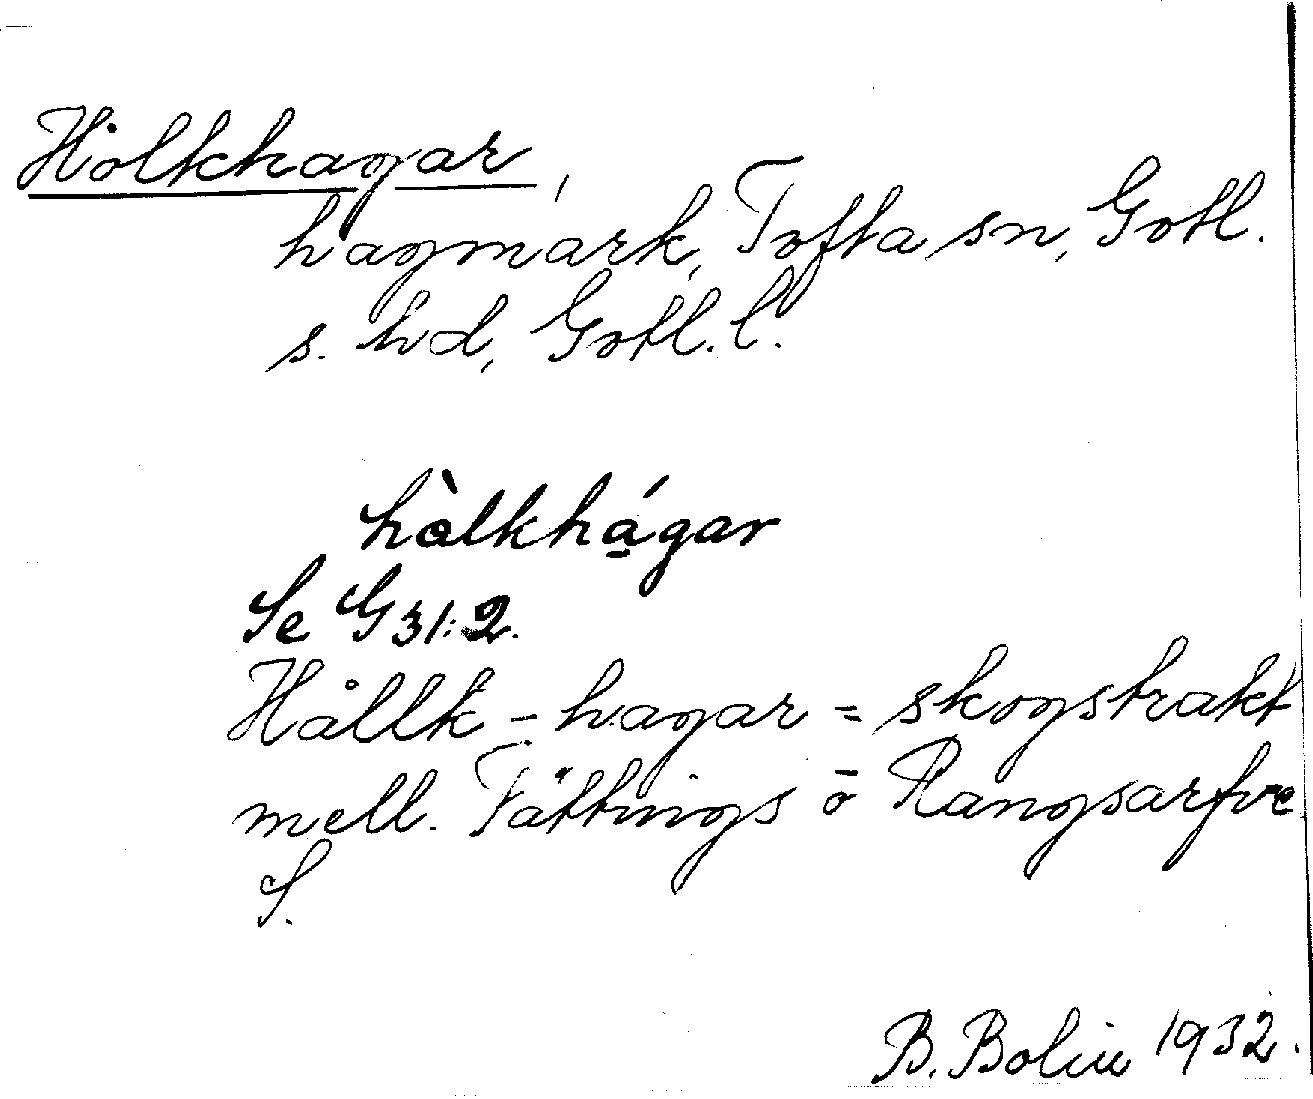 Hölkhagar,
hagmark, Tofta sn, Gotl.
s. hd, Gotl. l.
hàlkhá̱gar
Se G 31:2.
Hållk-hagar = skogstrakt
mell. Tättings ō Rangsarfve
S.
B. Bolin 1932.